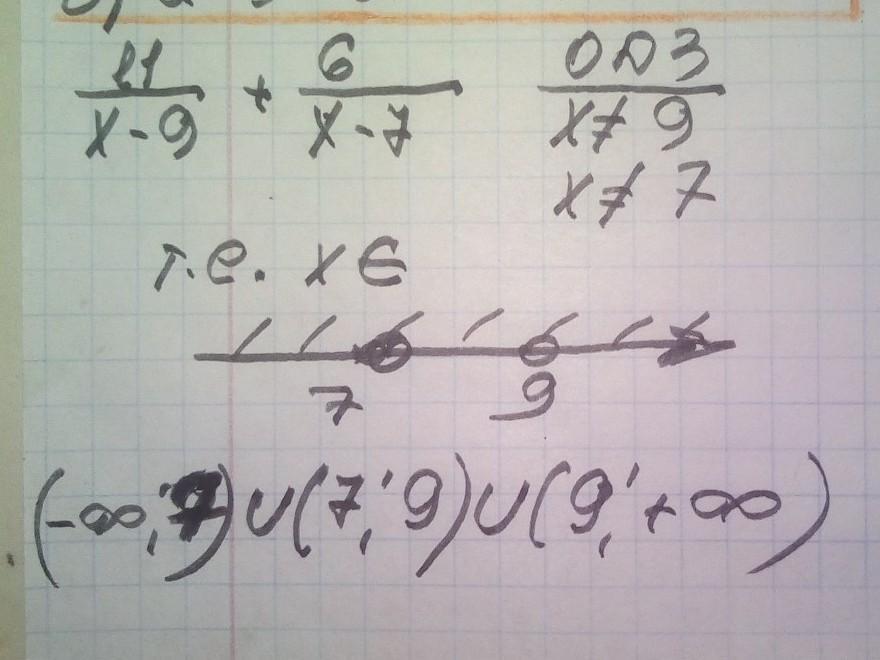 11/x-9 + 6/x-7
ОДЗ
x≠9
x≠7
т.е. x∈
7 9
(-∞;7)∪(7;9)∪(9;+∞)